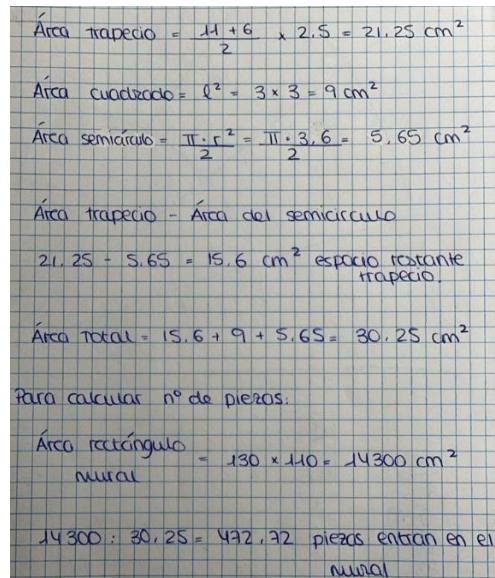 Área trapecio = 11 + 6 / 2 × 2,5 = 21.25 cm²
Área cuadrado = l² = 3 × 3 = 9 cm²
Área semicírculo = π · r² / 2 = π · 3,6 / 2 = 5,65 cm²
Área trapecio - Área del semicirculo
21.25 - 5.65 = 15.6 cm² espacio restante
trapecio.
Área Total = 15.6 + 9 + 5.65 = 30.25 cm²
Para calcular nº de piezas:
Área rectángulo
mural = 130 × 110 = 14300 cm²
14300 : 30,25 = 472,72 piezas entran en el
mural